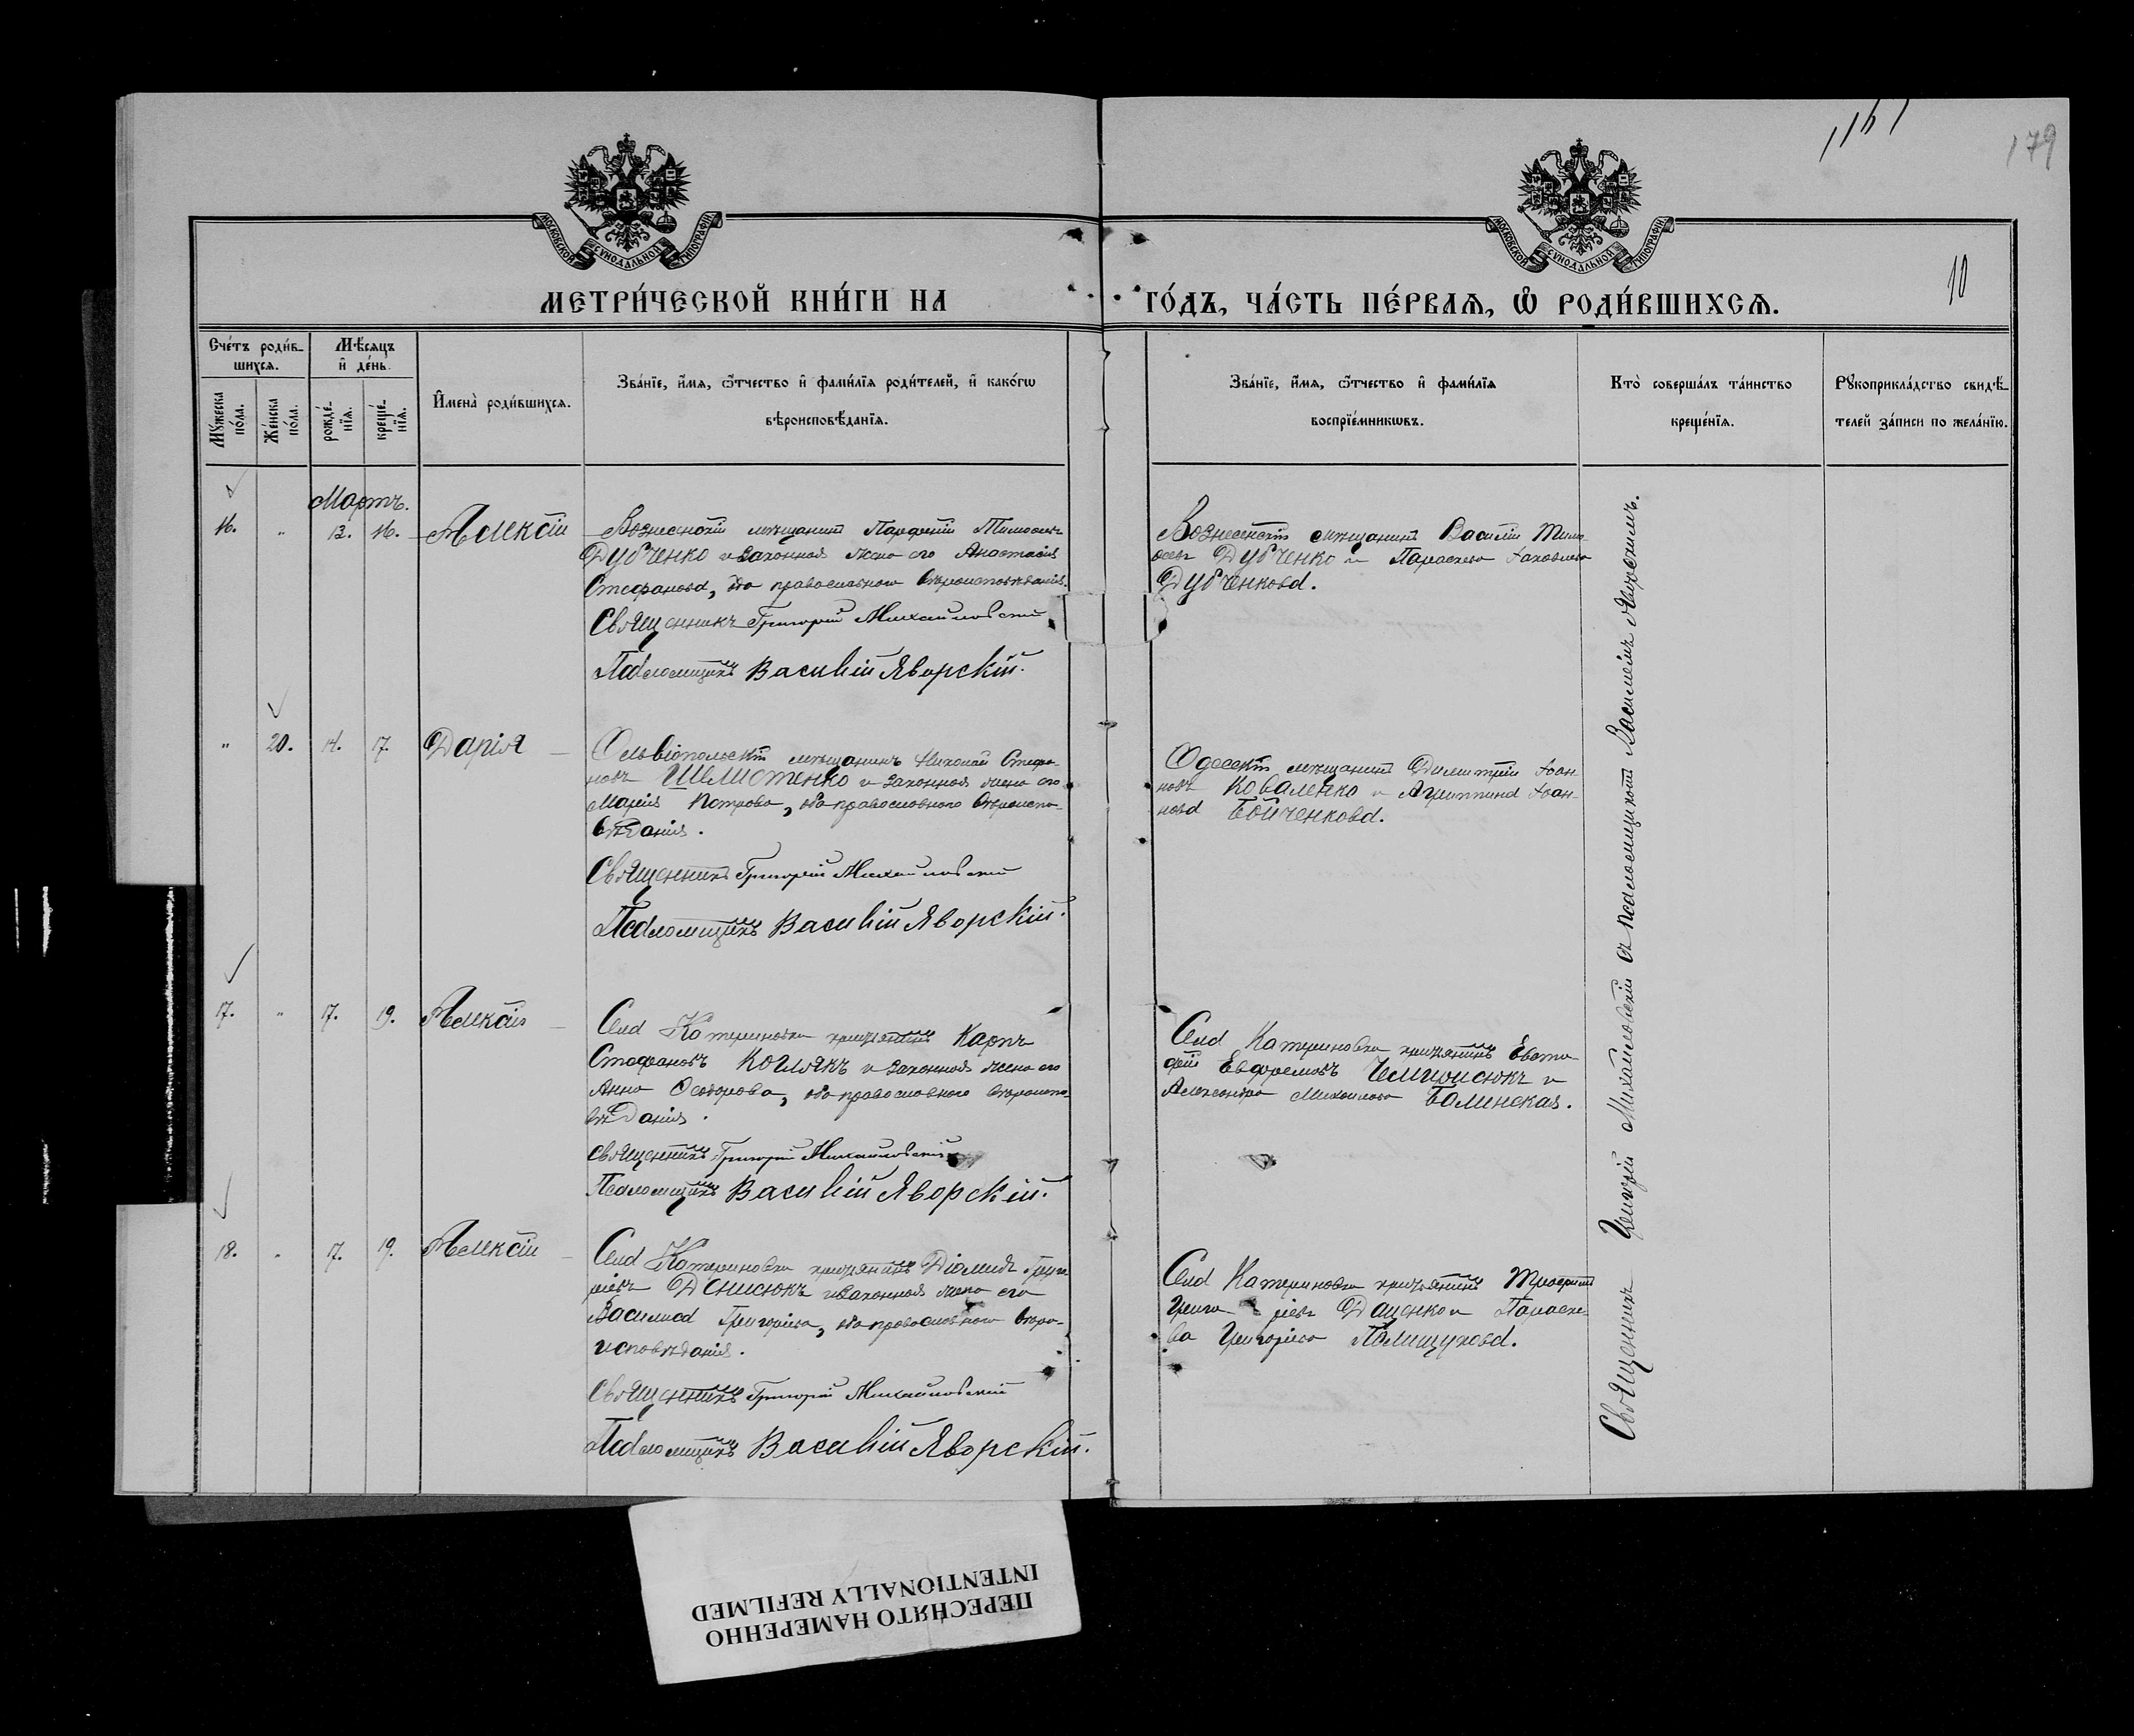 1161
179
10
МОСКОВСКОЙ СѴНОДАЛЬНОЙ ТИПОГРАФІИ
МОСКОВСКОЙ СѴНОДАЛЬНОЙ ТИПОГРАФІИ
МЕТРИ́ЧЕСКОЙ КНИ́ГИ НА
ГО́ДЪ, ЧА́СТЬ ПЕ́РВАѦ, Ѽ РОДИ́ВШИХСѦ.
Сче́тъ роди́в-
шихсѧ.
Мꙋ́жеска по́ла.
Же́нска по́ла.
Мѣ́сѧцъ
и҆ де́нь.
рожде́-
нїѧ.
креще́-
нїѧ.
И҆мена̀ роди́вшихсѧ.
Зва́нїе, и҆́мѧ, ѻ҆́тчество и҆ фами́лїѧ роди́телей, и҆ како́гѡ
вѣроисповѣ́данїѧ.
Зва́нїе, и҆́мѧ, ѻ҆́тчество и҆ фами́лїѧ
воспрїе́мникѡвъ.
Кто̀ соверша́лъ та́инство
креще́нїѧ.
Рꙋкоприкла́дство свидѣ́-
телей за́писи по жела́нїю.
Мартъ.
16. " 13. 16. Алексій
Вознесенскій мѣщанинъ Парфеній Тимофеевъ
Дубченко и законная жена его Анастасія
Стефанова, оба православнаго вѣроисповѣданія.
Священникъ Григорій Михайловскій
Псаломщикъ Василій Яворскій.
Вознесенскій мѣщанинъ Василій Тимо-
феевъ Дубченко и Параскева Іаковлева
Дубченкова.
" 20. 14. 17. Дарія
Ольвіопольскій мѣщанинъ Николай Стефа-
новъ Шелистенко и законная жена его
Марія Петрова, оба православнаго вѣроиспо-
вѣданія.
Священникъ Григорій Михайловскій
Псаломщикъ Василій Яворскій.
Одесскій мѣщанинъ Димитрій Іоан-
новъ Коваленко и Агриппина Іоан-
нова Бойченкова.
17. " 17. 19. Алексій
Села Катериновки крестьянинъ Карпъ
Стефановъ Коглякъ и законная жена его
Анна Феодорова, оба православнаго вѣроиспо-
вѣданія.
Священникъ Григорій Михайловскій
Псаломщикъ Василій Яворскій.
Села Катериновки крестьянинъ Евста-
фій Евфремовъ и
Александра Михайлова Балинская.
18. " 17. 19. Алексій
Села Катериновки крестьянинъ Діомидъ Григо-
ріевъ Денисюкъ и законная жена его
Василиса Григоріева, оба православнаго вѣро-
исповѣданія.
Священникъ Григорій Михайловскій
Псаломщикъ Василій Яворскій.
Села Катериновки крестьянинъ Трофимъ
Григоріевъ Даценко и Параске-
ва Григоріева Полищукова.
Священникъ Григорій Михайловскій съ псаломщикомъ Василіемъ Яворскимъ.
ПЕРЕСНЯТО НАМЕРЕННО
INTENTIONALLY REFILMED